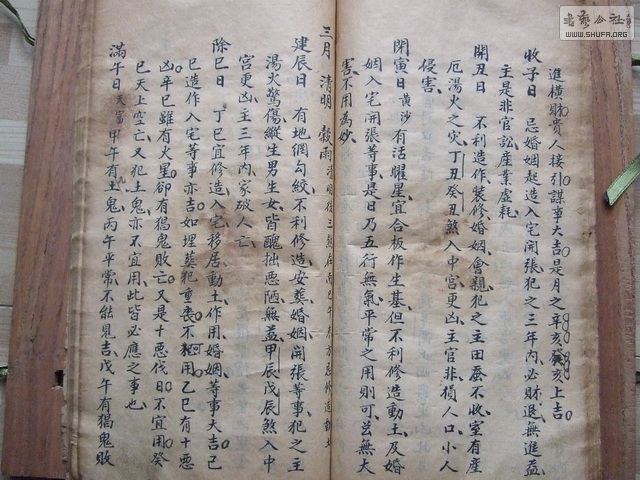 進橫財貴人接引謀事大吉是月之辛亥癸亥上吉
收子日 忌婚姻起造入宅開張犯之三年內必財退無進益
主是非官訟產業虛耗
開丑日 不利造作裝修婚姻會親犯之主田蚕不收室有產
厄湯火之灾丁丑癸丑煞入中宮更凶主官非損人口小人
侵害
閉寅日黃沙 有活曜星宜合板作生基但不利修造動土及婚
姻入宅開張等事是日乃五行無氣平常之用則可茲無大
害不用為妙
三月 清明 穀雨 清明後三煞在南巳午未方忌修造動土
建辰日 有地網勾絞不利修造安葬婚姻開張等事犯之主
湯火驚傷縱生男生女皆醜拙惡陋無益甲辰戊辰煞入中
宮更凶主三年內家破人亡
除巳日 丁巳宜修造入宅移居動土作用婚姻等事大吉己
巳造作入宅等事亦吉如埋葬犯重喪不可用乙巳有十惡
凶辛巳雖有火星卻有猖鬼敗亡又是十惡伐日不宜用癸
巳天上空亡又犯土鬼亦不宜用此皆必應之事也
滿午日天富 甲午有土鬼丙午平常不能見吉戊午有猖鬼敗
北藝公社
WWW.SHUFA.ORG